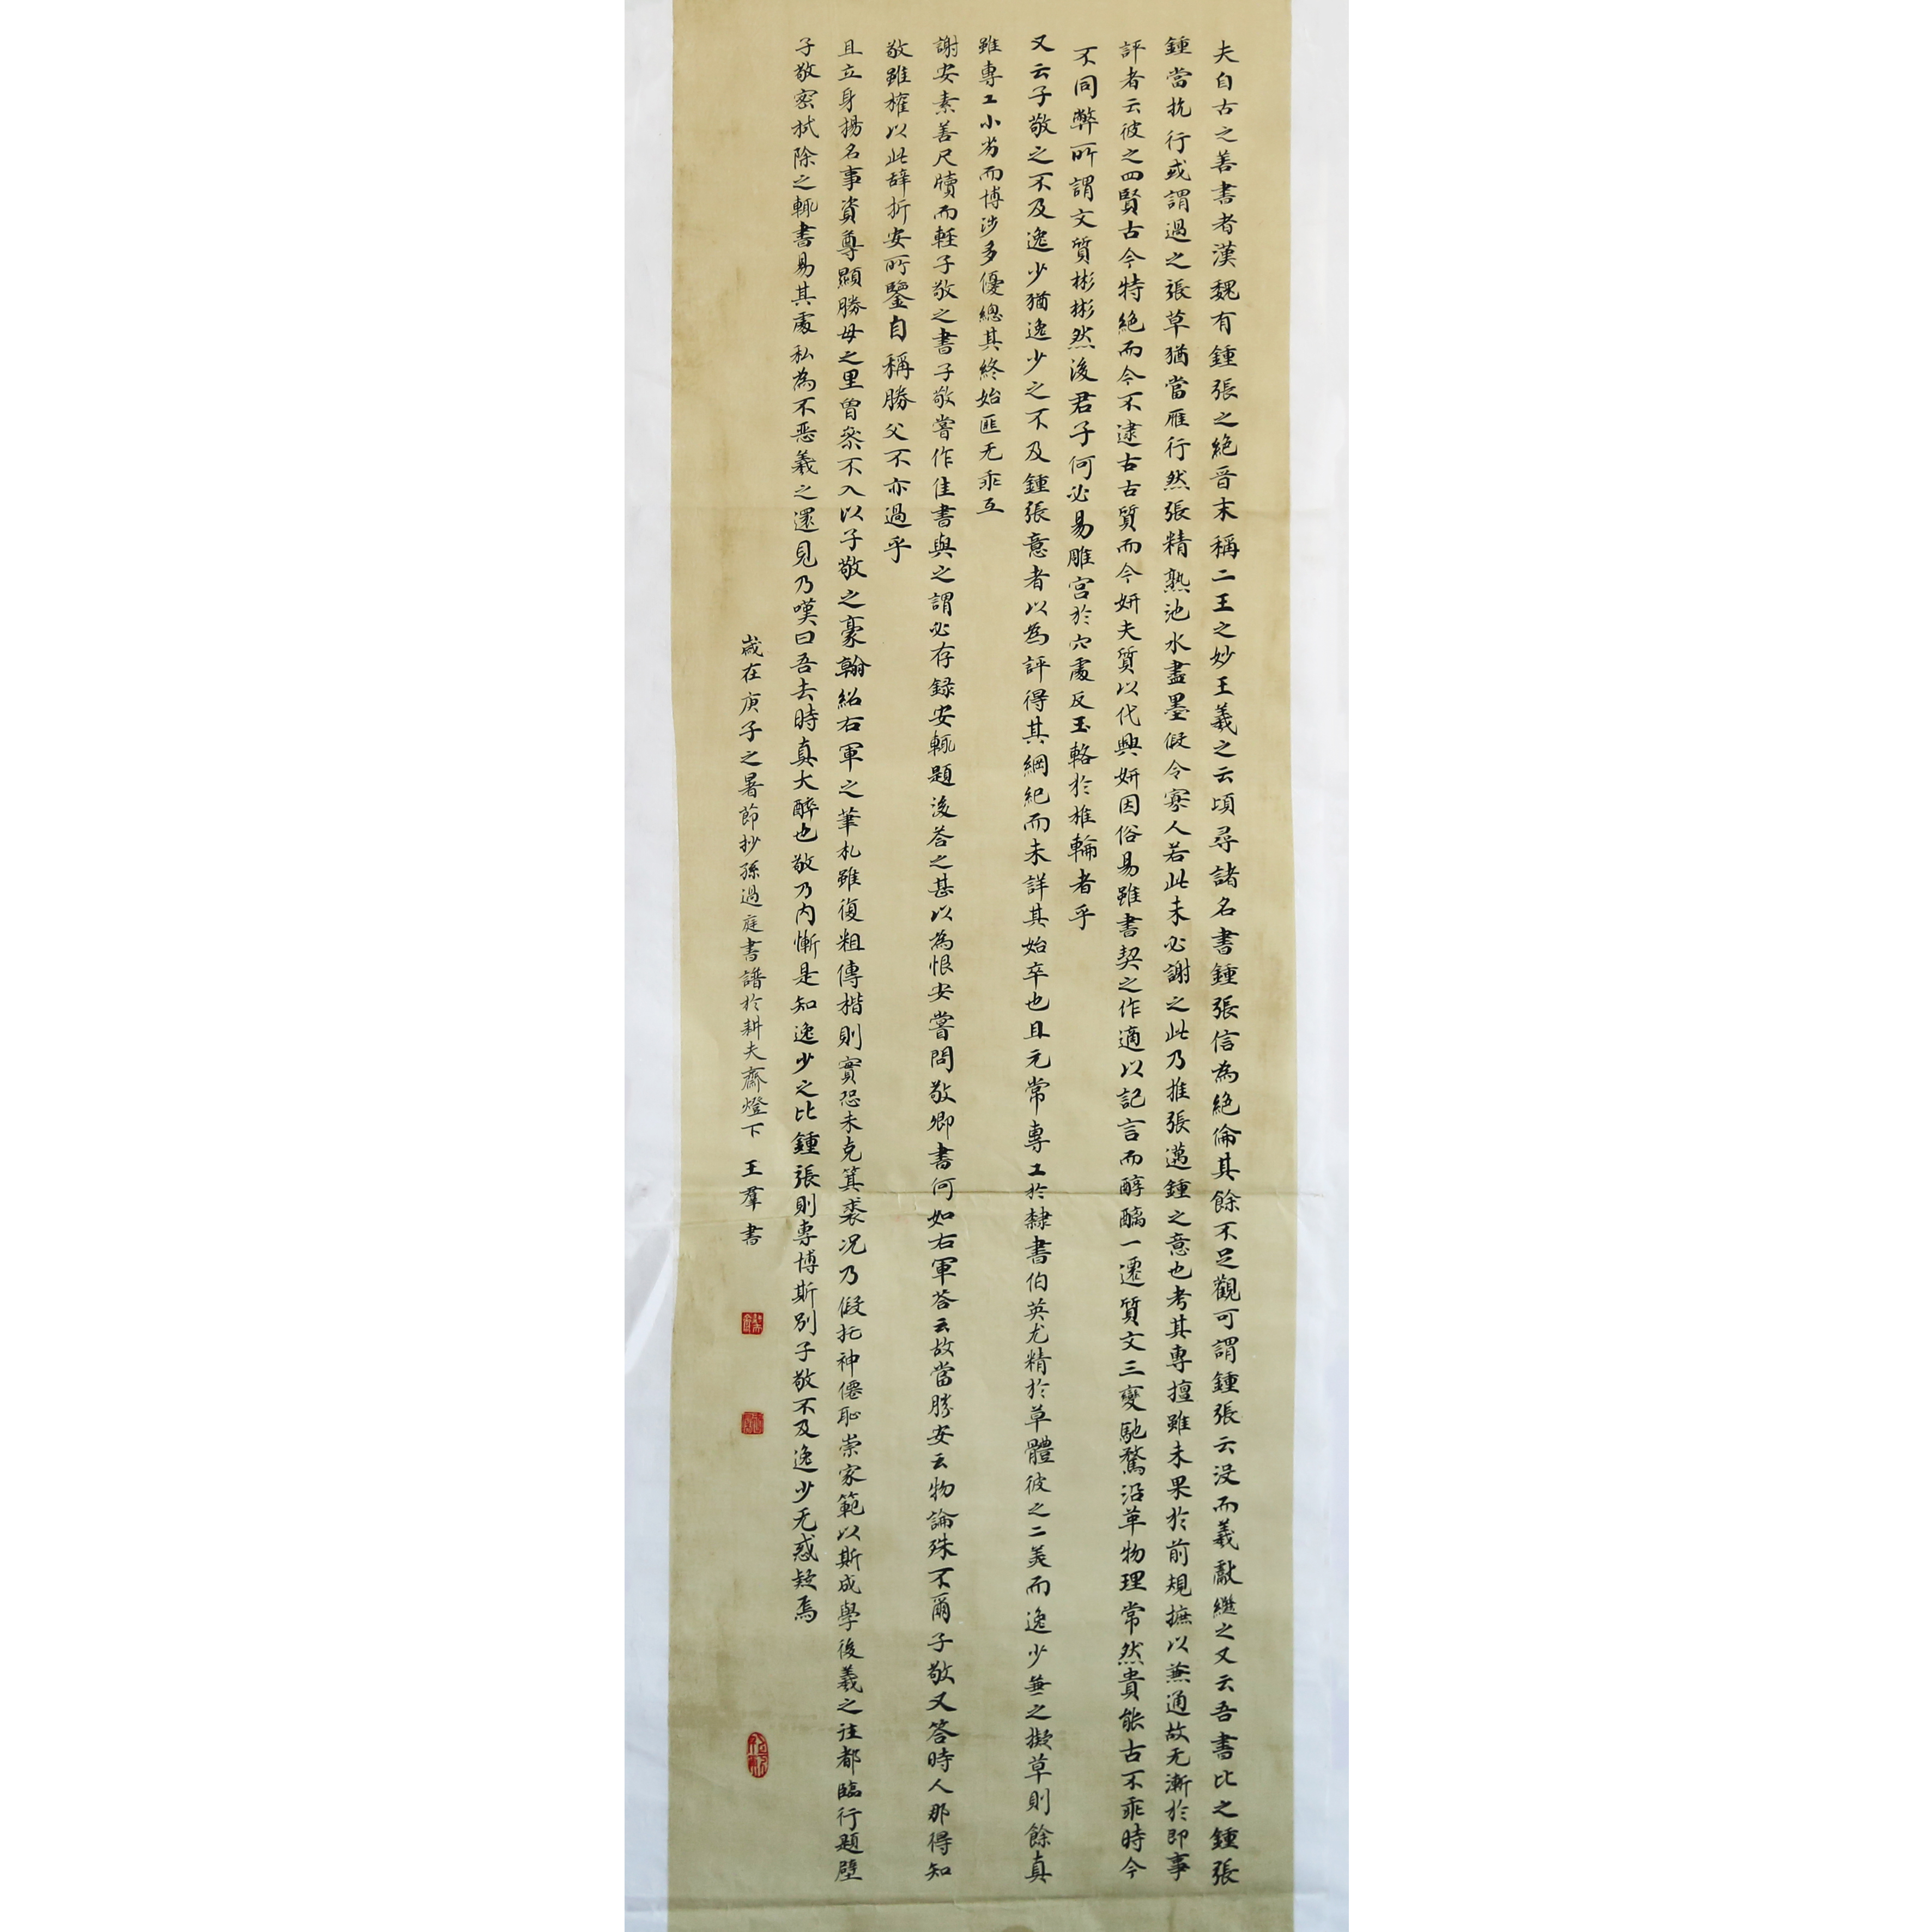 夫自古之善書者漢魏有鍾張之絕晉末稱二王之妙王羲之云頃尋諸名書鍾張信為絕倫其餘不足觀可謂鍾張云沒而羲獻繼之又云吾書比之鍾張
鍾當抗行或謂過之張草猶當雁行然張精熟池水盡墨假令寡人若此未必謝之此乃推張邁鍾之意也考其專擅雖未果於前規摭以兼通故无漸於即事
評者云彼之四賢古今特絕而今不逮古古質而今妍夫質以代興妍因俗易雖書契之作適以記言而醇醨一遷質文三變馳鶩沿革物理常然貴能古不乖時今
不同弊所謂文質彬彬然後君子何必易雕宮於穴處反玉輅於椎輪者乎
又云子敬之不及逸少猶逸少之不及鍾張意者以為評得其綱紀而未詳其始卒也且元常專工於隸書伯英尤精於草體彼之二美而逸少兼之擬草則餘真
雖專工小劣而博涉多優總其終始匪无乖互
謝安素善尺牘而輕子敬之書子敬嘗作佳書與之謂必存録安輒題後答之甚以為恨安嘗問敬卿書何如右軍荅云故當勝安云物論殊不爾子敬又答時人那得知
敬雖權以此辞折安所鑒自稱勝父不亦過乎
且立身揚名事資尊顯勝母之里曾參不入以子敬之豪翰紹右軍之筆札雖復粗傳楷則實恐未克箕裘况乃假托神僊恥崇家範以斯成學後羲之往都臨行題壁
子敬密拭除之輒書易其處私為不恶羲之還見乃嘆曰吾去時真大醉也敬乃内慚是知逸少之比鍾張則專博斯別子敬不及逸少无惑疑焉
歲在庚子之暑節抄孫過庭書譜於耕夫齋燈下 王羣書